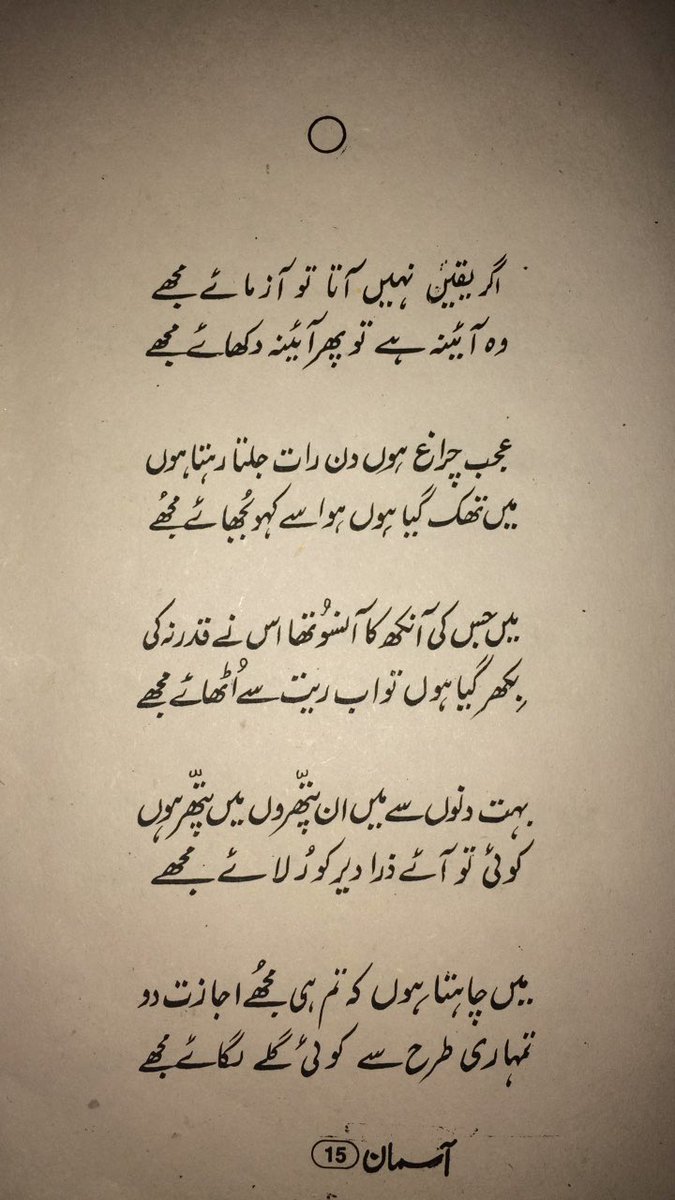 اگر یقین نہیں آتا تو آزمائے مجھے
وہ آئینہ ہے تو پھر آئینہ دکھائے مجھے
عجب چراغ ہوں دن رات جلتا رہتا ہوں
میں تھک گیا ہوں ہوا سے کہو بُجھائے مجھُے
میں جس کی آنکھ کا آنسوُ تھا اس نے قدر نہ کی
بِکھر گیا ہوں تو اب ریت سے اُٹھائے مجھے
بہت دنوں سے میں ان پتّھروں میں پتّھر ہوں
کوئی تو آئے ذرا دیر کو رُلائے مجھے
میں چاہتا ہوں کہ تم ہی مجھُے اجازت دو
تمہاری طرح سے کوئی گلے لگائے مجھے
آسمان 15